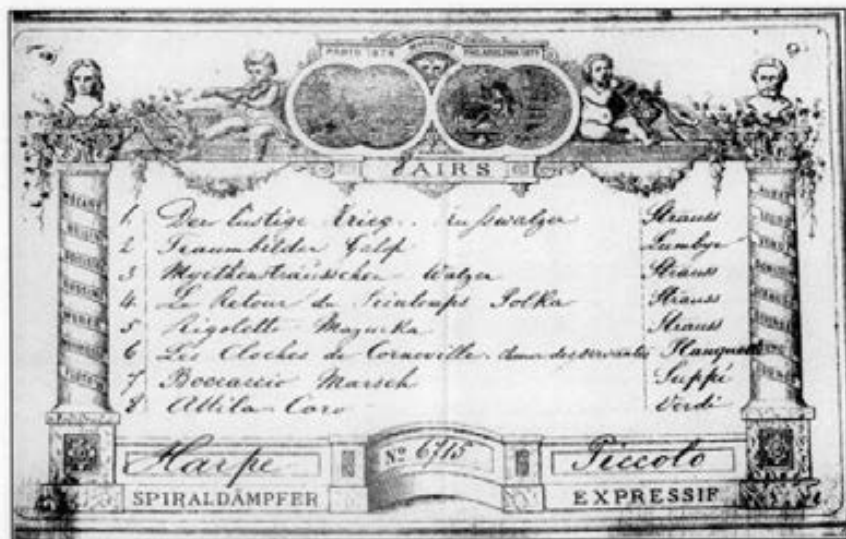 PARIS 1878 PHILADELPHIA 1876
8 AIRS
1 Der lustige Krieg. Kusswalzer Strauss
2 Traumbilder Galop Lumbye
3 Myrthensträusschen Walzer Strauss
4 Le Retour du Printemps Polka Strauss
5 Rigoletto Mazurka Strauss
6 Les Cloches de Corneville. des servantes
7 Boccaccio Marsch Suppé
8 Attila Coro Verdi
Harpe Nº 6715 Piccolo
SPIRALDÄMPFER EXPRESSIF
WEBER